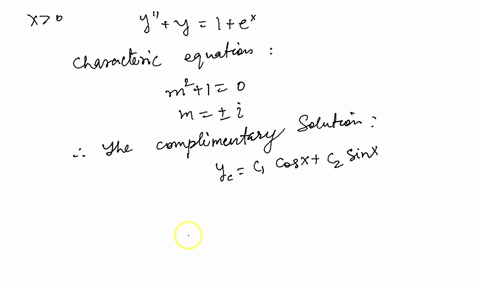 x>0 y'' + y = 1 + eˣ
Characteric equation :
m² + 1 = 0
m = ± i
∴ The Complimentary Solution :
y_c = C₁ cosx + C₂ sinx